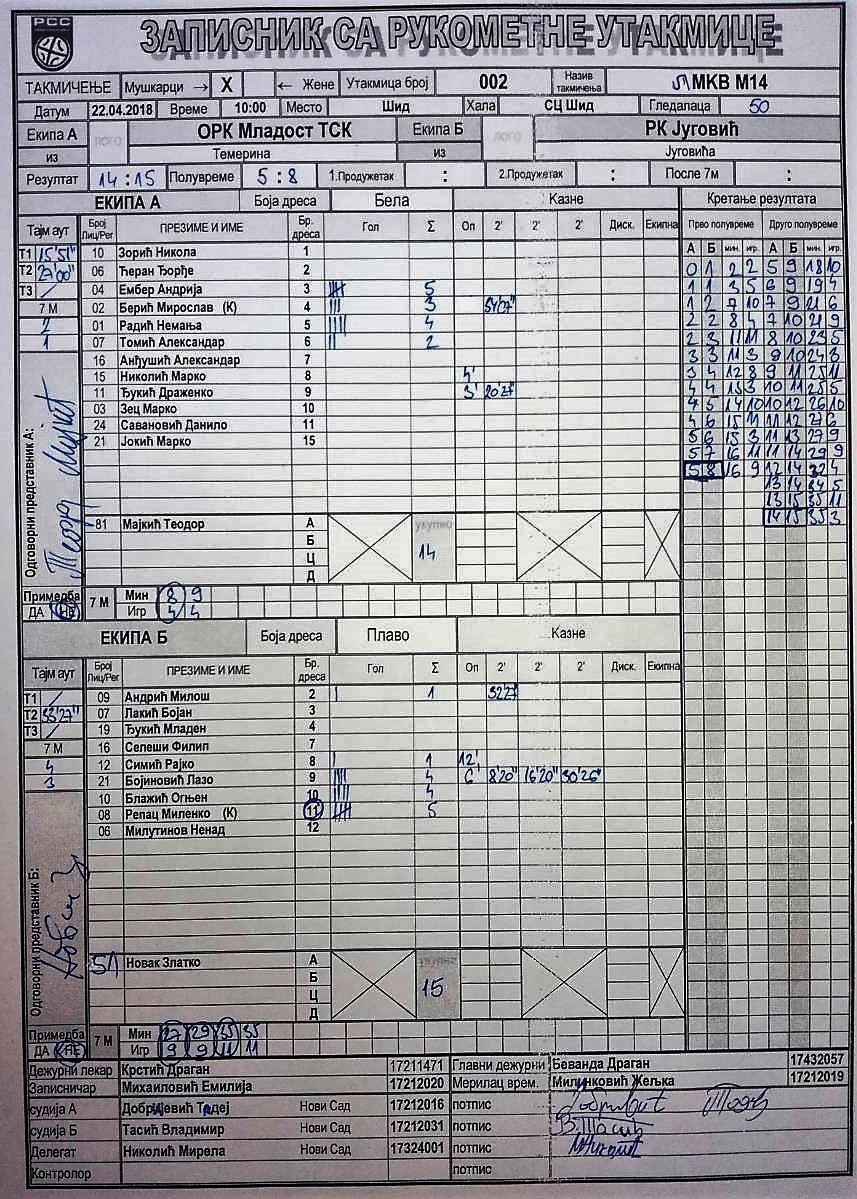 РСС
ЗАПИСНИК СА РУКОМЕТНЕ УТАКМИЦЕ
ТАКМИЧЕЊЕ Мушкарци → X ← Жене Утакмица број 002 Назив такмичења МКВ М14
Датум 22.04.2018 Време 10:00 Место Шид Хала СЦ Шид Гледалаца 50
Екипа А лого ОРК Младост ТСК Екипа Б лого РК Југовић
из Темерина из Југовића
Резултат 14:15 Полувреме 5:8 1.Продужетак : 2.Продужетак : После 7м :
ЕКИПА А Боја дреса Бела Казне Кретање резултата
Тајм аут Број Лиц/Рег ПРЕЗИМЕ И ИМЕ Бр. дреса Гол Σ Оп 2' 2' 2' Диск. Екипна Прво полувреме Друго полувреме
А Б мин. игр. А Б мин. игр.
Т1 15'51" 10 Зорић Никола 1
Т2 27'00" 06 Ћеран Ђорђе 2
Т3 / 04 Ембер Андрија 3 5
7 М 02 Берић Мирослав (К) 4 III 3
2 01 Радић Немања 5 IIII 4
1 07 Томић Александар 6 II 2
16 Анђушић Александар 7
15 Николић Марко 8 4'
11 Ђукић Драженко 9 3' 20'27"
03 Зец Марко 10
24 Савановић Данило 11
21 Јокић Марко 15
0 1 2 2 5 9 18 10
1 1 3 5 6 9 19 4
1 2 7 10 7 9 21 6
2 2 8 4 7 10 21 9
2 3 11 11 8 10 23 5
3 3 11 3 9 10 24 3
3 4 12 8 9 11 25 11
4 4 13 3 10 11 25 5
4 5 14 10 10 12 26 10
4 6 15 11 11 12 27 6
5 6 15 3 11 13 27 9
5 7 16 11 11 14 29 9
5 8 16 9 12 14 32 4
13 14 34 5
13 15 35 11
14 15 35 3
Одговорни представник А:
81 Мајкић Теодор А укупно
Б 14
Ц
Д
Примедба ДА НЕ 7 М Мин 8 9
Игр 4 4
ЕКИПА Б Боја дреса Плаво Казне
Тајм аут Број Лиц/Рег ПРЕЗИМЕ И ИМЕ Бр. дреса Гол Σ Оп 2' 2' 2' Диск. Екипна
Т1 / 09 Андрић Милош 2 I 1 32'27"
Т2 33'27" 07 Лакић Бојан 3
Т3 / 19 Ђукић Младен 4
7 М 16 Селеши Филип 7
4 12 Симић Рајко 8 I 1 12'
3 21 Бојиновић Лазо 9 IIII 4 6' 8'20" 16'20" 30'26"
10 Блажић Огњен 10 IIII 4
08 Репац Миленко (К) 11 5
06 Милутинов Ненад 12
Одговорни представник Б:
51 Новак Златко А
Б 15
Ц
Д
Примедба ДА НЕ 7 М Мин 27 29 35 35
Игр 9 9 11 11
Дежурни лекар Крстић Драган 17211471 Главни дежурни Беванда Драган 17432057
Записничар Михаиловић Емилија 17212020 Мерилац врем. Милинковић Жељка 17212019
судија А Добријевић Тадеј Нови Сад 17212016 потпис
судија Б Тасић Владимир Нови Сад 17212031 потпис В.Тасић
Делегат Николић Мирела Нови Сад 17324001 потпис
Контролор потпис